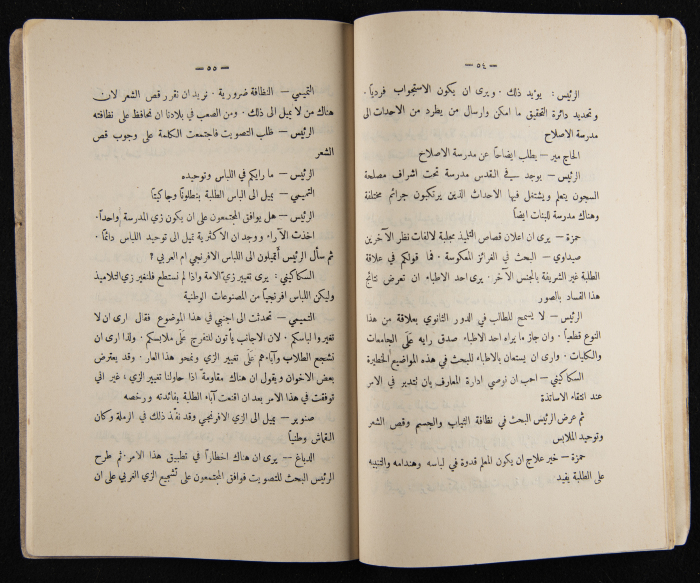 — ٥٤ —
الرئيس : يؤيد ذلك . ويرى ان يكون الاستجواب فردياً .
وتحديد دائرة التحقيق ما امكن وارسال من يطرد من الاحداث الى
مدرسة الاصلاح
الحاج مير — يطلب ايضاحاً عن مدرسة الاصلاح
الرئيس — يوجد في القدس مدرسة تحت اشراف مصلحة
السجون يتعلم ويشتغل فيها الاحداث الذين يرتكبون جرائم مختلفة
وهناك مدرسة للبنات ايضاً
حمزة — يرى ان اعلان قصاص التلميذ مجلبة لالفات نظر الآخرين
صيداوي — البحث في الغرائز المعكوسة . فما قولكم في علاقة
الطلبة غير الشريفة بالجنس الآخر . يرى احد الاطباء ان تعرض نتائج
هذا الفساد بالصور
الرئيس — لا يسمح للطالب في الدور الثانوي بعلاقة من هذا
النوع قطعياً . وان جاز ما يراه احد الاطباء صدق رايه على الجامعات
والكليات . وارى ان يستعان بالاطباء للبحث في هذه المواضيع الخطيرة
السكاكيني — احب ان نوصي ادارة المعارف بان تتدبر في الامر
عند انتقاء الاساتذة
ثم عرض الرئيس البحث في نظافة الثياب والجسم وقص الشعر
وتوحيد الملابس
حمزة — خير علاج ان يكون المعلم قدوة في لباسه وهندامه والتنبيه
على الطلبة يفيد
— ٥٥ —
التميمي — النظافة ضرورية . نريد ان نقرر قص الشعر لان
هناك من لا يميل الى ذلك . ومن الصعب في بلادنا ان نحافظ على نظافته
الرئيس — طلب التصويت فاجتمعت الكلمة على وجوب قص
الشعر
الرئيس — ما رايكم في اللباس وتوحيده
التميمي — يميل الى الباس الطلبة بنطلوناً وجاكيتا
الرئيس — هل يوافق المجتمعون على ان يكون زي المدرسة واحداً .
اخذت الآراء ووجد ان الاكثرية تميل الى توحيد اللباس دائماً .
ثم سأل الرئيس أتميلون الى اللباس الافرنجي ام العربي ؟
السكاكيني : يرى تغيير زي الامة واذا لم نستطع فلنغير زي التلاميذ
وليكن اللباس افرنجياً من المصنوعات الوطنية
التميمي — تحدثت الى اجنبي في هذا الموضوع فقال ارى ان لا
تغيروا لباسكم . لان الاجانب يأتون للتفرج على ملابسكم . ولذا ارى ان
نشجع الطلاب وآباءهم على تغيير الزي ونمحو هذا العار . وقد يعترض
بعض الاخوان ويقول ان هناك مقاومةً اذا حاولنا تغيير الزي ، غير اني
توفقت في هذا الامر بعد ان اقنعت آباء الطلبة بفائدته ورخصه
صنوبر — يميل الى الزي الافرنجي وقد نفّذ ذلك في الرملة وكان
القماش وطنياً
الدباغ — يرى ان هناك اخطاراً في تطبيق هذا الامر . ثم طرح
الرئيس البحث للتصويت فوافق المجتمعون على تشجيع الزي الغربي على ان